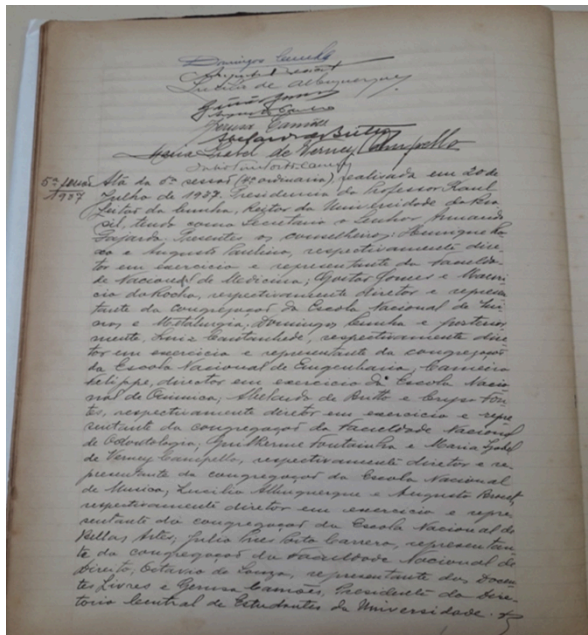 Domingos Cunha
Lucilia de Albuquerque
Gerson Camões
Abelardo de Britto
Maria Isabel de Verney Campello
Julio Porto Carrero
5ª sessão Ata da 5ª sessão (4ª ordinaria), realizada em 20 de
1937 Julho de 1937. Presidencia do Professor Raul
Leitão da Cunha, Reitor da Universidade do Bra
sil, tendo como Secretario o Senhor
Fajardo. Presentes os conselheiros: Henrique La
e Augusto Paulino, respectivamente dire-
tor em exercicio e representante da Faculda-
de Nacional de Medicina; Gomes e Mauri-
cio da Rocha, respectivamente diretor e represen-
tante da congregação da Escola Nacional de Mi-
nas e Metalurgia; Domingos Cunha e posterior
mente, Luiz Cantanhede, respectivamente dire-
tor em exercicio e representante da congregação
da Escola Nacional de Engenharia; Carneiro
Felippe, director em exercicio da Escola Nacio-
nal de Quimica; Abelardo de Britto e Fon-
tes, respectivamente diretor em exercicio e repre-
sentante da congregação da Faculdade Nacional
de Odontologia; Guilherme Fontainha e Maria Isabel
de Verney Campello, respectivamente diretor e re-
presentante da congregação da Escola Nacional
de Musica; Lucilia Albuquerque e Augusto Bracet,
respectivamente diretor em exercicio e repre-
sentante da congregação da Escola Nacional de
Bellas Artes, Julio Porto Carrero, representan-
te da congregação da Faculdade Nacional de
Direito, Octavio de Souza, representante dos Docen-
tes Livres e Gerson Camões, Presidente do Dire-
torio Central de Estudantes da Universidade.